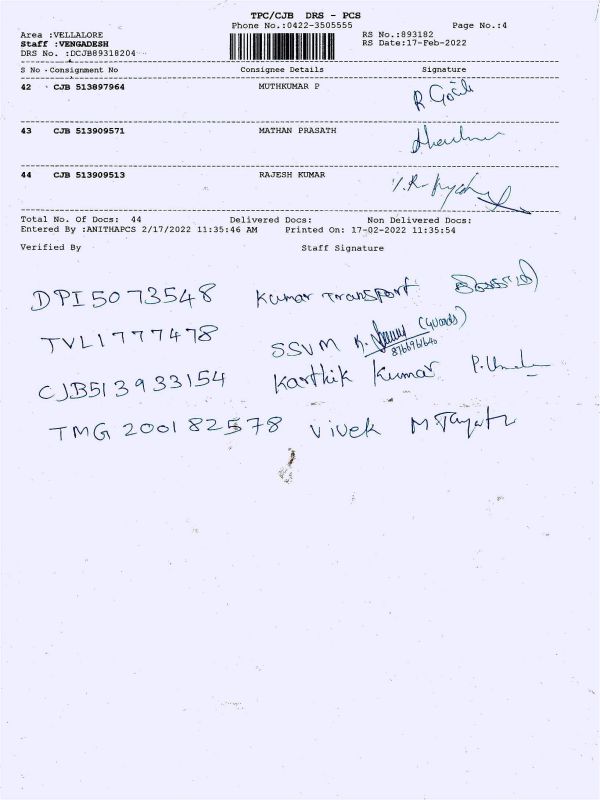 TPC/CJB DRS - PCS
Phone No.:0422-3505555 Page No.:4
Area :VELLALORE RS No.:893182
Staff :VENGADESH RS Date:17-Feb-2022
DRS No. :DCJB89318204
S No Consignment No Consignee Details Signature
42 CJB 513897964 MUTHKUMAR P
43 CJB 513909571 MATHAN PRASATH
44 CJB 513909513 RAJESH KUMAR
Total No. Of Docs: 44 Delivered Docs: Non Delivered Docs:
Entered By :ANITHAPCS 2/17/2022 11:35:46 AM Printed On: 17-02-2022 11:35:54
Verified By Staff Signature
DPI5073548 Kumar Transport
TVL1777478 SSVM
CJB513933154 Karthik Kumar
TMG 200182578 Vivek